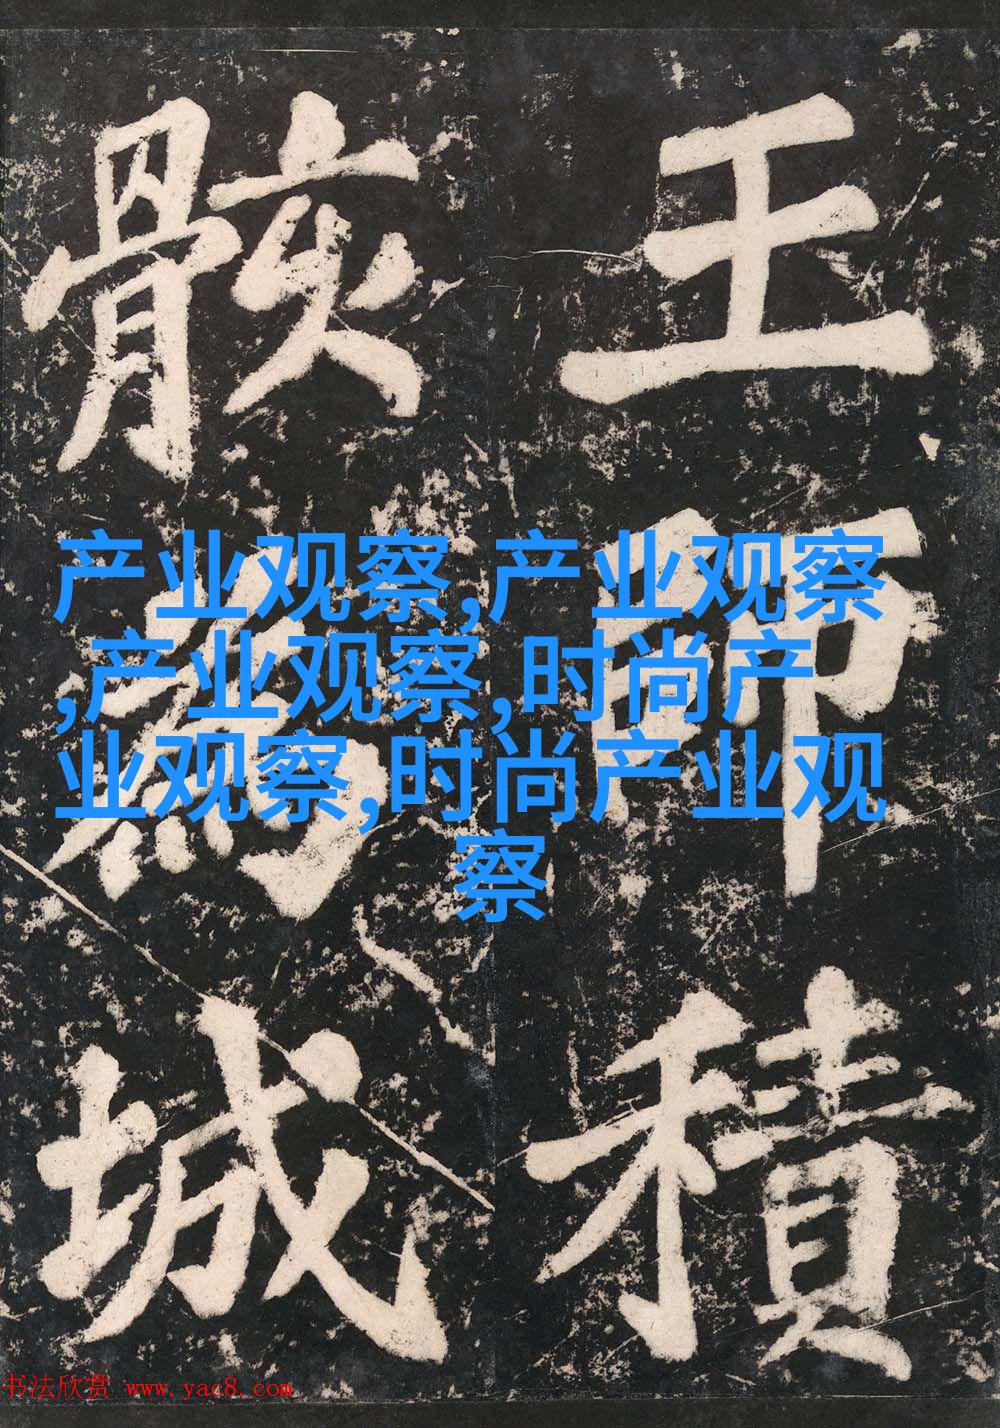 王師積
骸城
产业观察,产业观察
,产业观察,时尚产
业观察,时尚产业观
察
书法欣赏 www.yac8.com